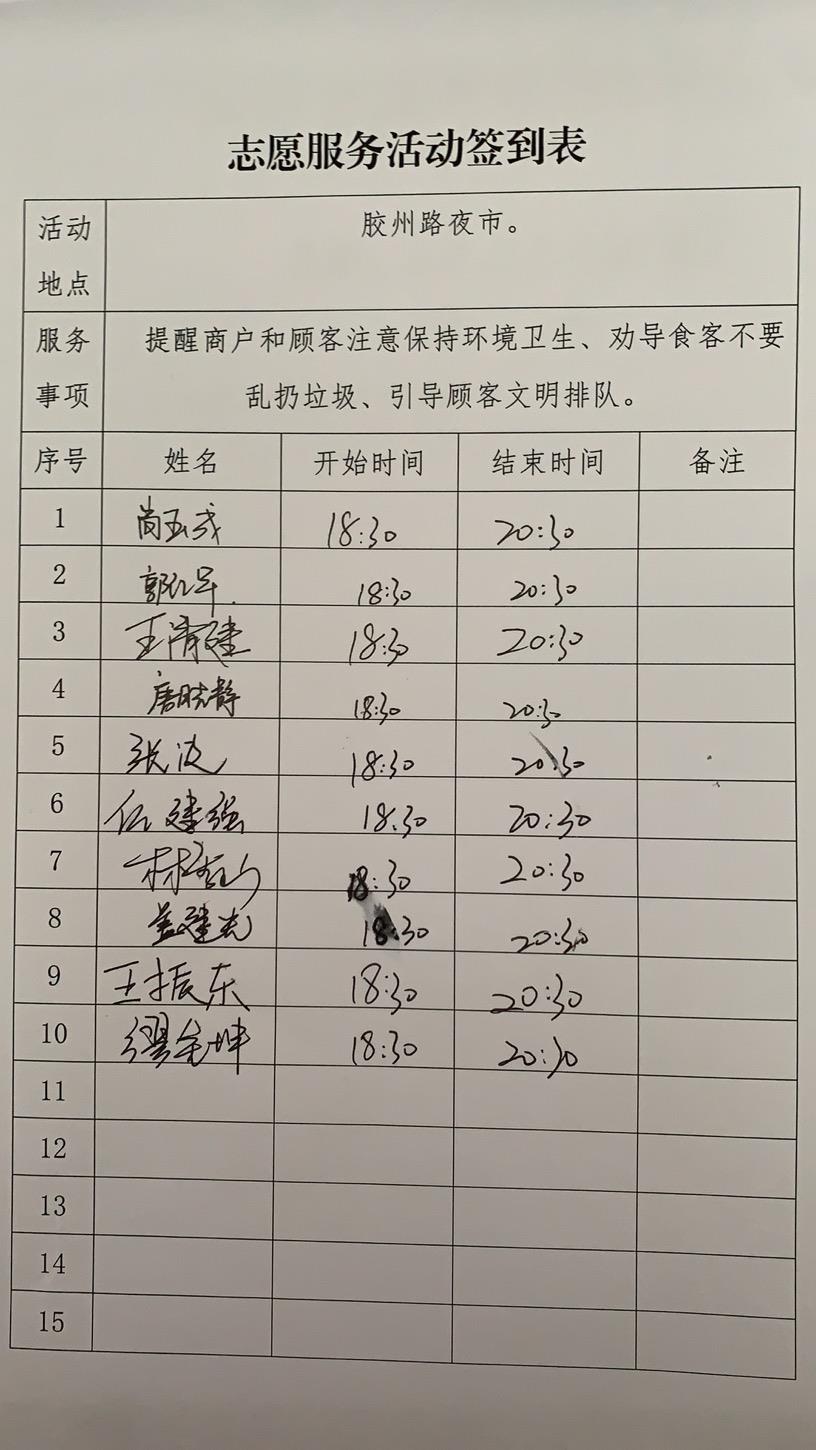 志愿服务活动签到表
活动地点 胶州路夜市。
服务事项 提醒商户和顾客注意保持环境卫生、劝导食客不要
乱扔垃圾、引导顾客文明排队。
序号 姓名 开始时间 结束时间 备注
1 尚玉成 18:30 20:30
2 18:30 20:30
3 王清建 18:30 20:30
4 唐晓静 18:30 20:30
5 张波 18:30 20:30
6 任建强 18:30 20:30
7 18:30 20:30
8 孟建光 18:30 20:30
9 王振东 18:30 20:30
10 18:30 20:30
11
12
13
14
15